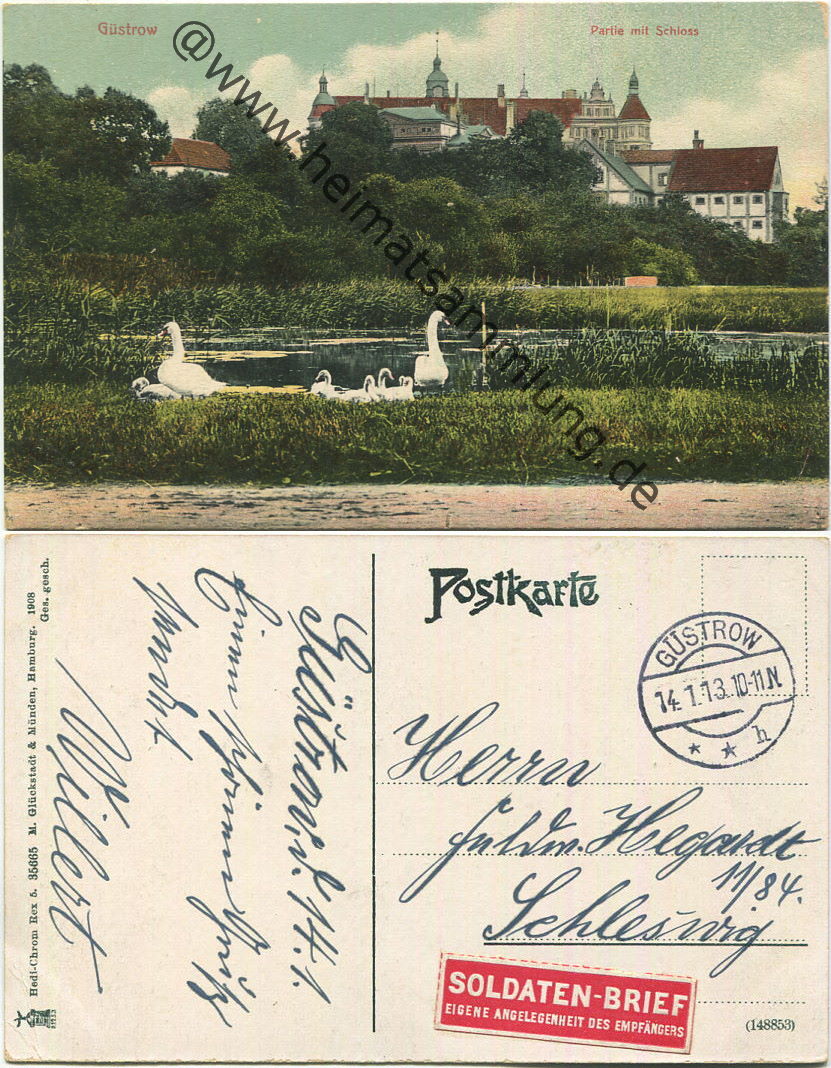 Güstrow
Partie mit Schloss
@www.heimatsammlung.de
Hedi-Chrom Rex 5. 35665 M. Glückstadt & Münden, Hamburg. 1908
Ges. gesch.
Güstrow, d. 14.1.
Einen schönen Gruß
sendet
Willert
Postkarte
GÜSTROW
14.1.13.10-11N
* * h
Herrn
Feldw. Hegardt
11/84.
Schleswig
SOLDATEN-BRIEF
EIGENE ANGELEGENHEIT DES EMPFÄNGERS
(148853)